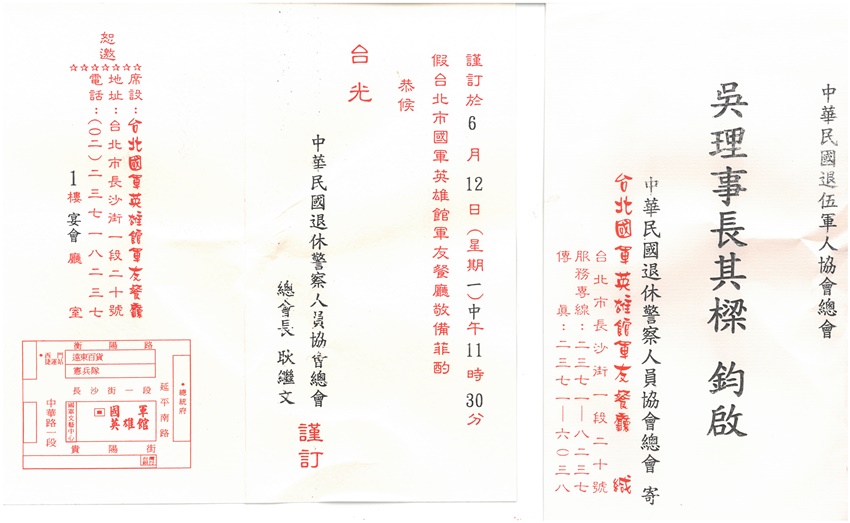 中華民國退伍軍人協會總會
吳理事長其樑 鈞啟
中華民國退休警察人員協會總會 寄
台北國軍英雄館軍友餐廳 緘
台北市長沙街一段二十號
服務專線：二三七一—八二三七
傳真：二三七一—六○三八
謹訂於6月12日(星期一)中午11時30分
假台北市國軍英雄館軍友餐廳敬備菲酌
恭候
台光
中華民國退休警察人員協會總會
總會長 耿繼文
謹訂
恕邀
☆☆☆☆☆☆☆
席設：台北國軍英雄館軍友餐廳
地址：台北市長沙街一段二十號
電話：(○二)二三七一八二三七
1樓宴會廳室
衡陽路
*西門捷運站
遠東百貨
憲兵隊
長沙街一段
延平南路
*總統府
中華路一段
國軍文藝中心
國軍英雄館
貴陽街